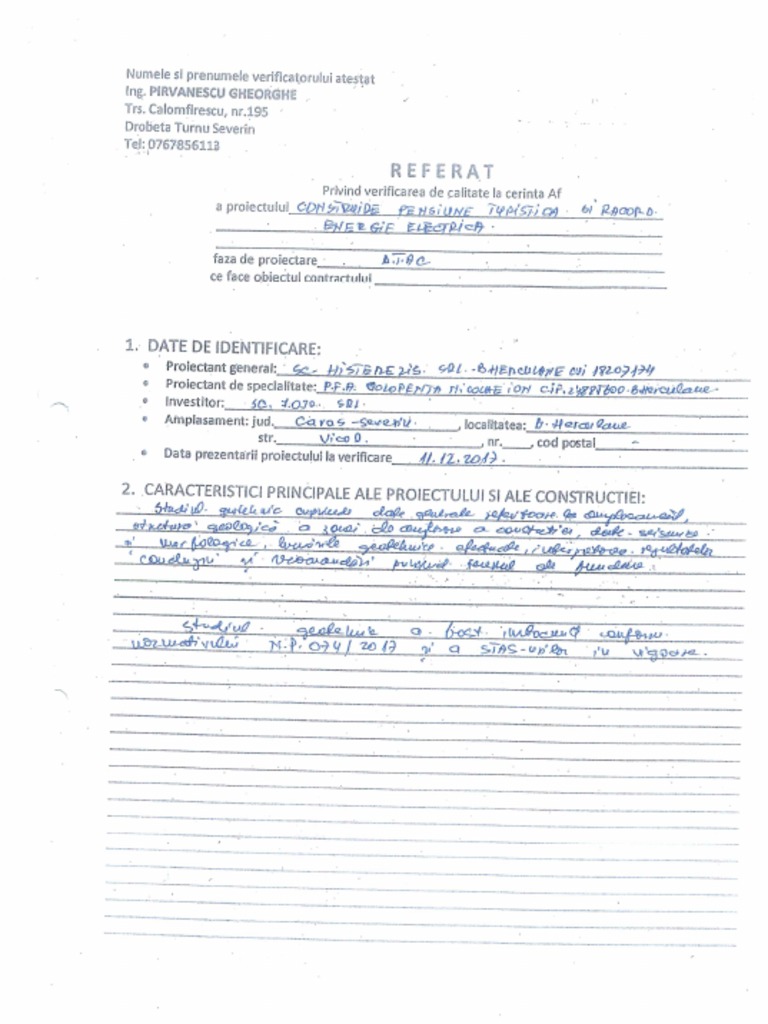 Numele si prenumele verificatorului atestat
Ing. PIRVANESCU GHEORGHE
Trs. Calomfirescu, nr.195
Drobeta Turnu Severin
Tel: 0767856113
REFERAT
Privind verificarea de calitate la cerinta Af
a proiectului CONSTRUIDE PENSIUNE TURISTICA SI RACORD
ENERGIE ELECTRICA.
faza de proiectare D.T.A.C
ce face obiectul contractului
1. DATE DE IDENTIFICARE:
• Proiectant general: SC. HISTEREZIS. SRL. - B HERCULANE CUI 18207174
• Proiectant de specialitate: P.F.A. NICOLAE ION C.I.F. B Herculane.
• Investitor: SC. SRL
• Amplasament: jud. Caras-Severin, localitatea: B. Herculane
str. , nr. , cod postal -
• Data prezentarii proiectului la verificare 11.12.2017.
2. CARACTERISTICI PRINCIPALE ALE PROIECTULUI SI ALE CONSTRUCTIEI:
Studiul geotehnic cuprinde date generale referitoare la amplasament,
structura geologică a zonei de a constructiei, date seismice
si morfologice, lucrările geotehnice efectuate, interpretarea rezultatelor
concluzii și recomandări privind terenul de fundare.
Studiul geotehnic a fost intocmit conform
normativului N.P. 074/2017 și a STAS-urilor in vigoare.